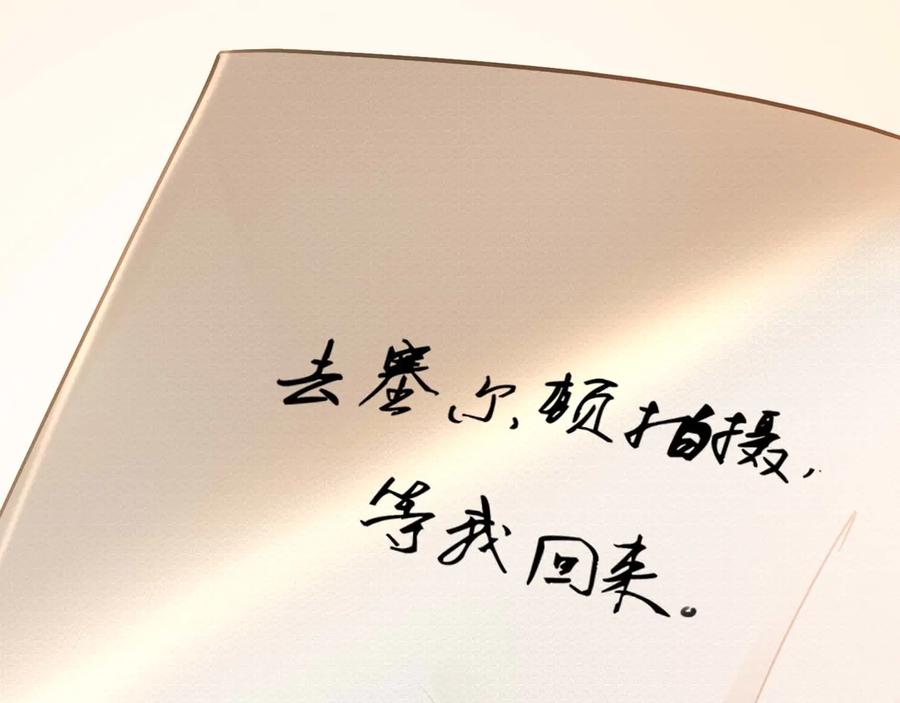 去塞尔顿拍摄，
等我回来。